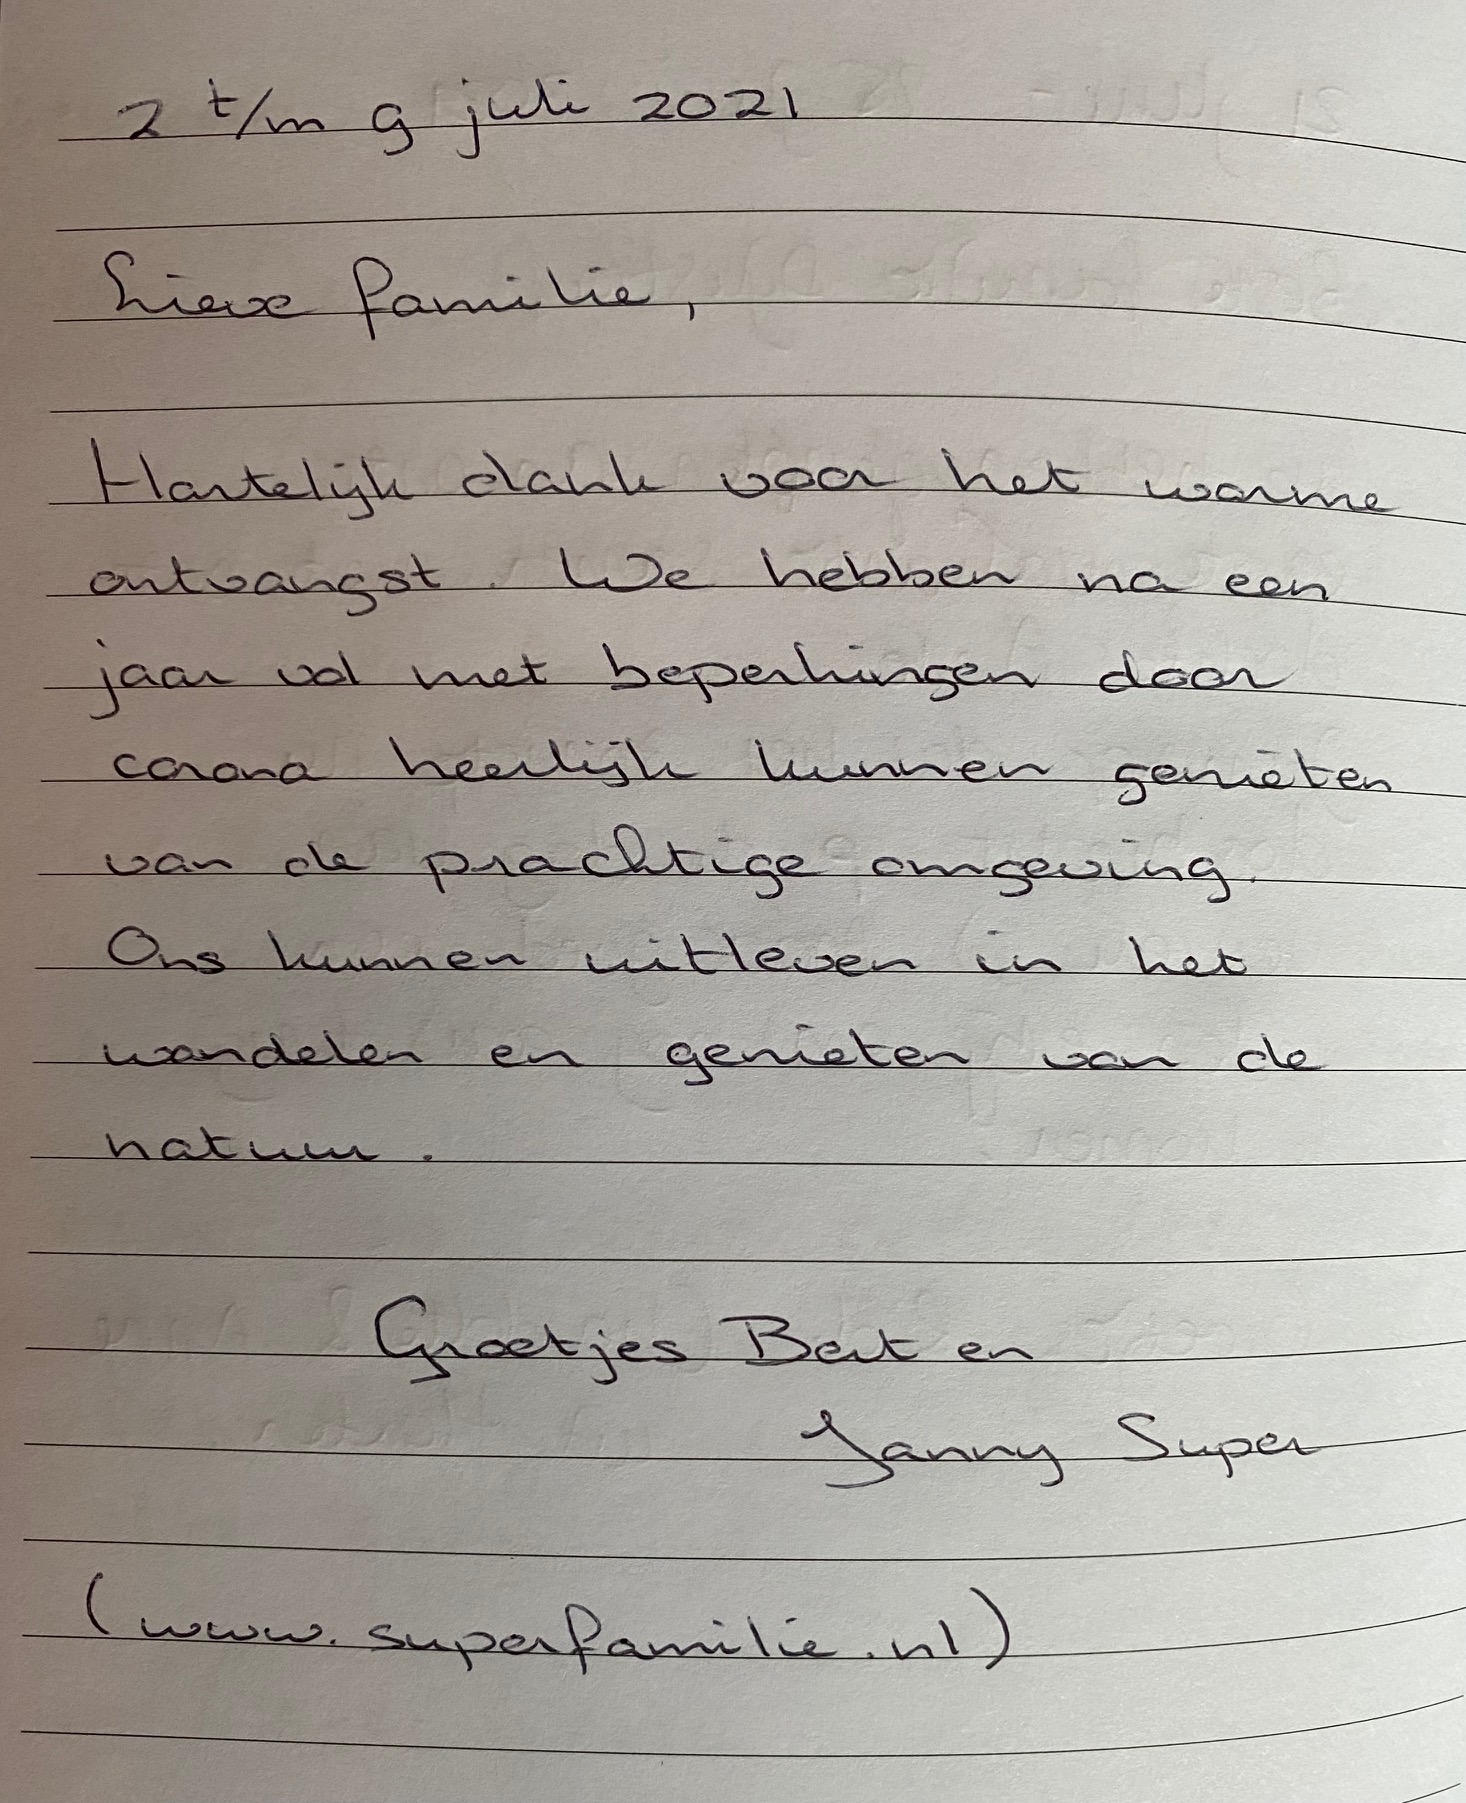 2 t/m 9 juli 2021
Lieve familie,
Hartelijk dank voor het warme
ontvangst. We hebben na een
jaar vol met beperkingen door
corona heerlijk kunnen genieten
van de prachtige omgeving.
Ons kunnen uitleven in het
wandelen en genieten van de
natuur.
Groetjes Bert en
Janny Super
(www.superfamilie.nl)